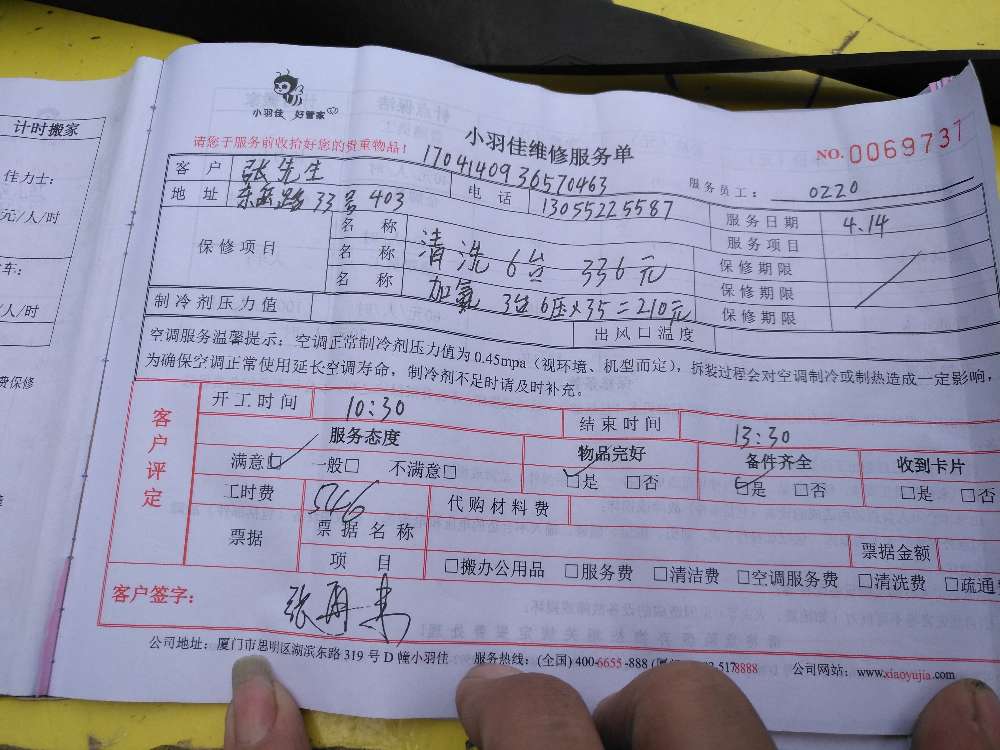 计时搬家
佳力士:
元/人/时
车:
/人/时
费保修
小羽佳 好管家
小羽佳维修服务单
请您于服务前收拾好您的贵重物品!
NO. 0069737
1704140936570463
服务员工: 0220
客户 张先生 电话 13055225587 服务日期 4.14
地址 路33号403 服务项目
保修项目 名称 清洗 6台 336元 保修期限
名称 加氟 3台6压×35=210元 保修期限
名称 保修期限
制冷剂压力值 出风口温度
空调服务温馨提示: 空调正常制冷剂压力值为0.45mpa(视环境、机型而定),拆装过程会对空调制冷或制热造成一定影响,
为确保空调正常使用延长空调寿命,制冷剂不足时请及时补充。
客户评定
开工时间 10:30 结束时间 13:30
服务态度 物品完好 备件齐全 收到卡片
满意☑ 一般□ 不满意□ ☑是 □否 ☑是 □否 □是 □否
工时费 546 代购材料费
票据 票据名称 票据金额
项目 □搬办公用品 □服务费 □清洁费 □空调服务费 □清洗费 □疏通
客户签字:
公司地址:厦门市思明区湖滨东路319号D幢小羽佳 服务热线:(全国)400-6655-888 5178888 公司网站:www.xiaoyujia.com